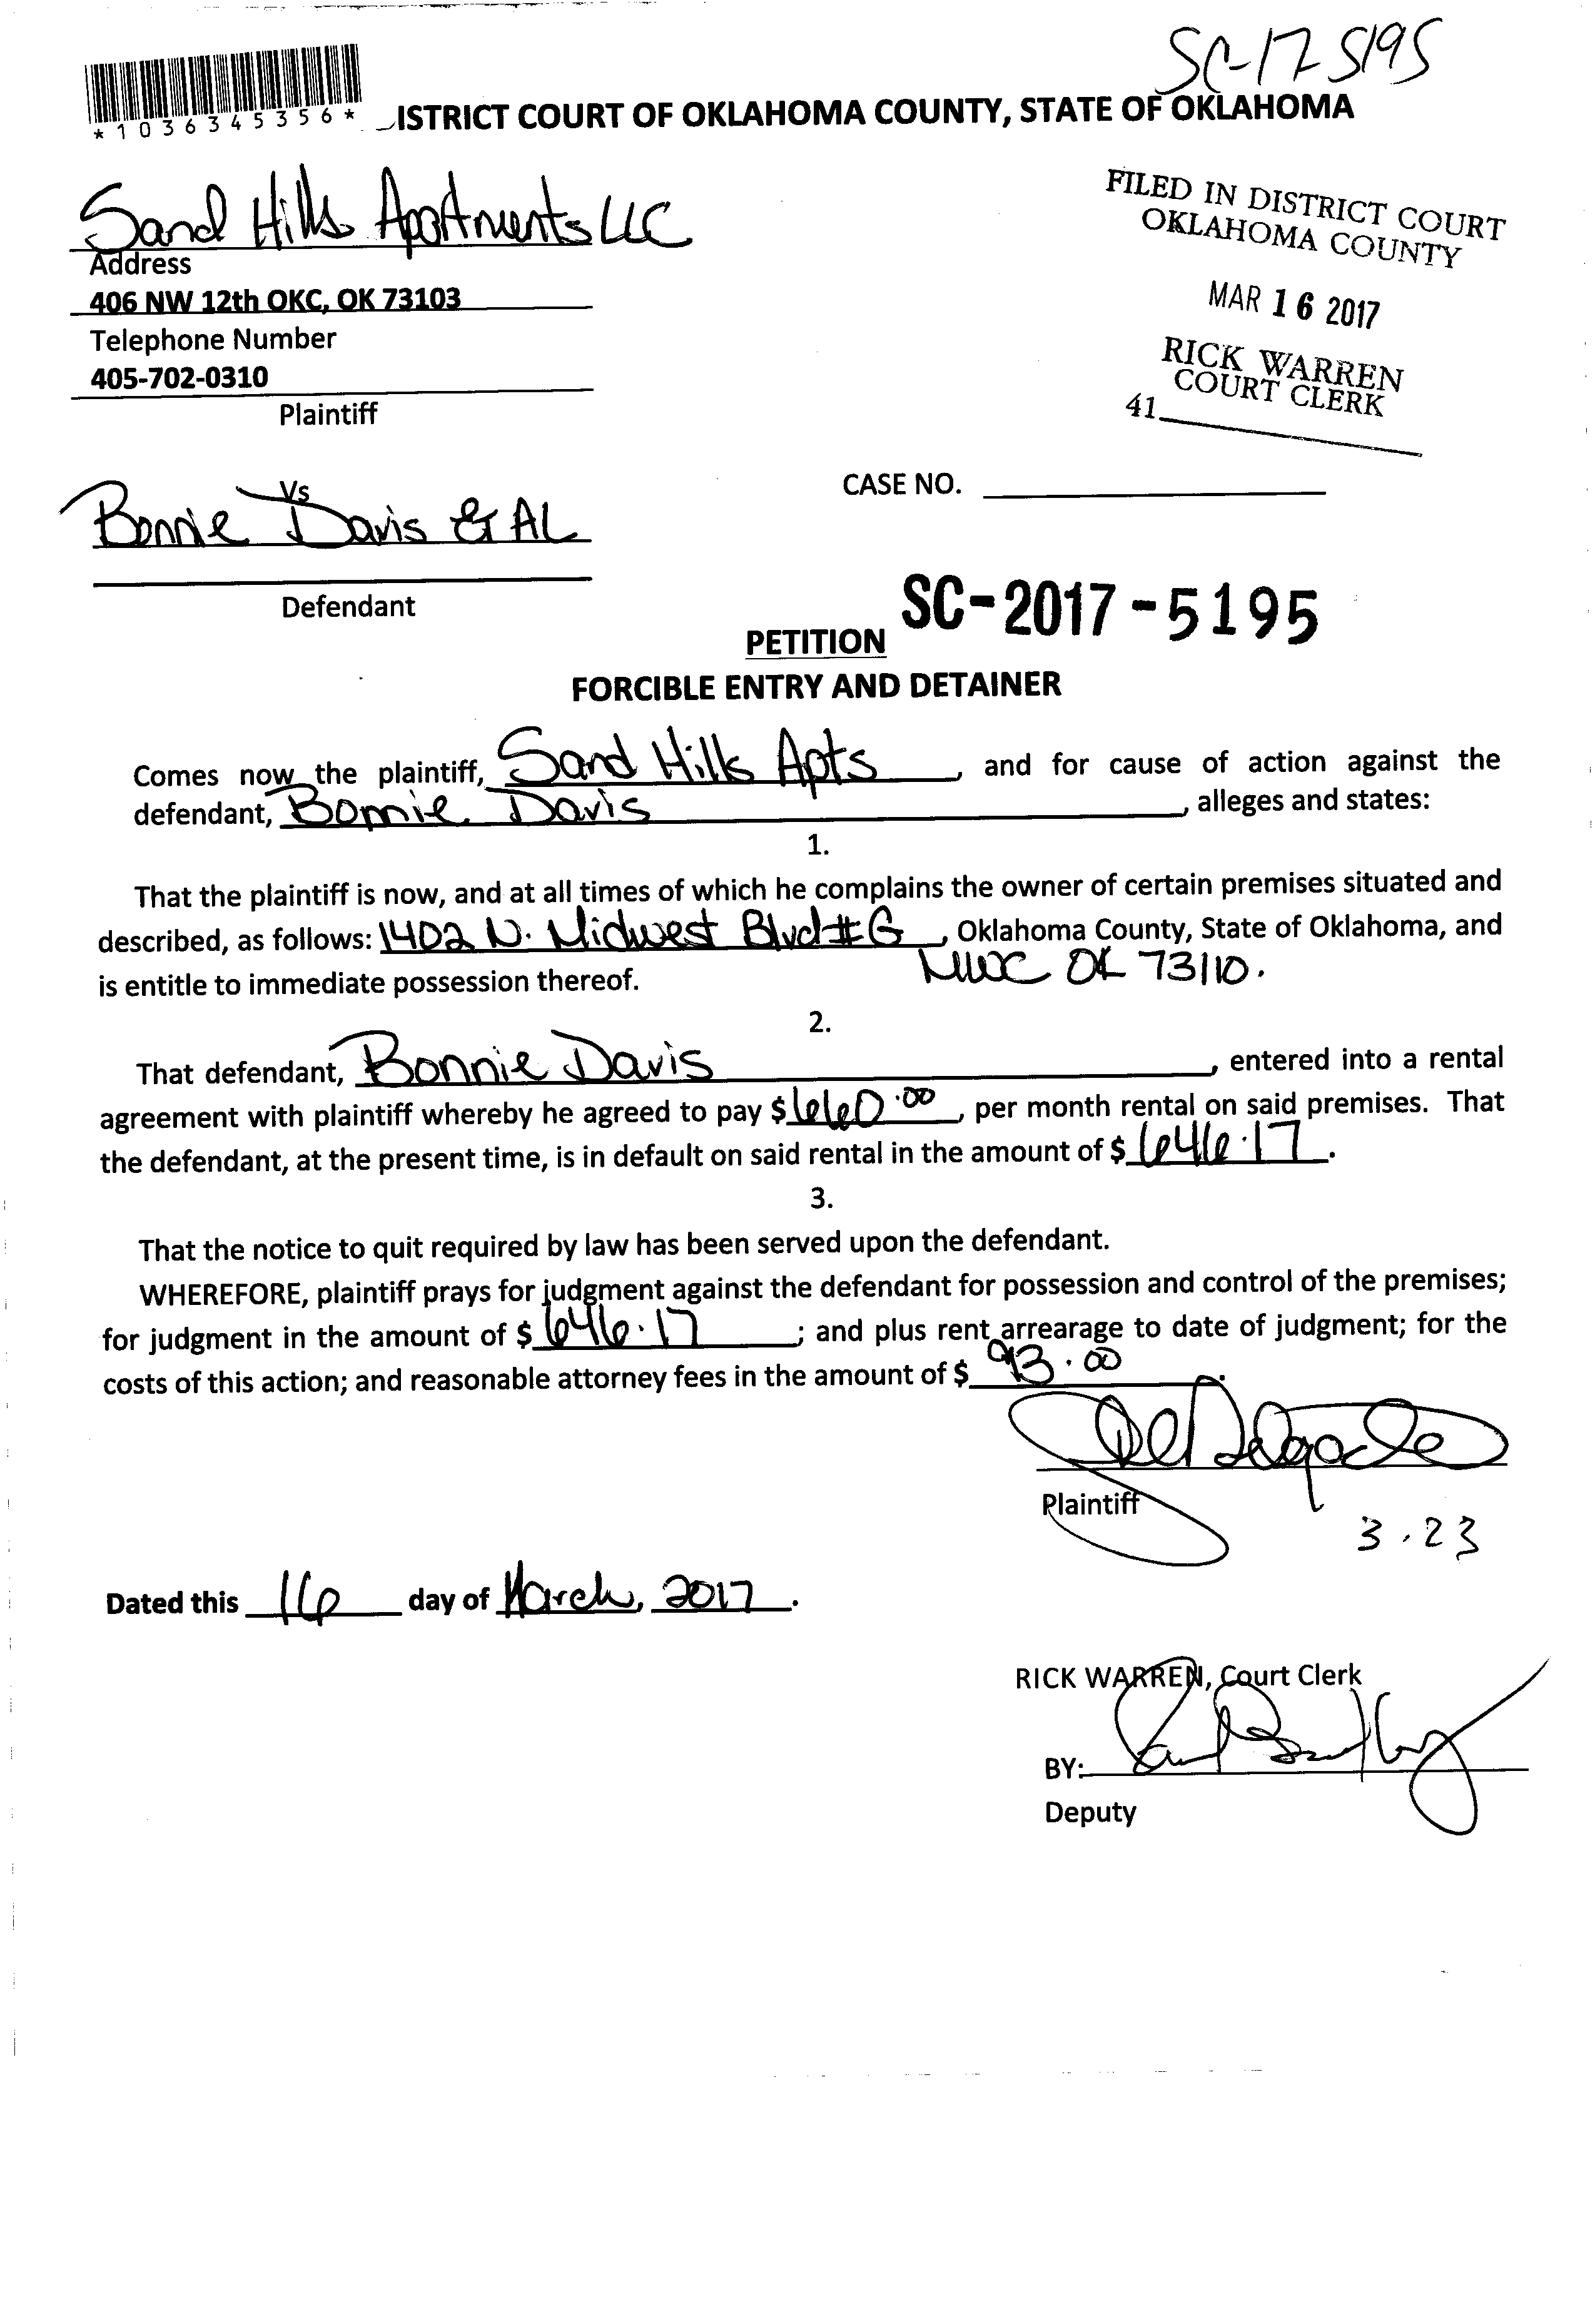 SC-17 5195
*1036345356*
ISTRICT COURT OF OKLAHOMA COUNTY, STATE OF OKLAHOMA
Sand Hills Apartments LLC
Address
406 NW 12th OKC, OK 73103
Telephone Number
405-702-0310
Plaintiff
FILED IN DISTRICT COURT
OKLAHOMA COUNTY
MAR 16 2017
RICK WARREN
COURT CLERK
41
Vs
Bonnie Davis & AL
Defendant
CASE NO.
SC-2017-5195
PETITION
FORCIBLE ENTRY AND DETAINER
Comes now the plaintiff, Sand Hills Apts, and for cause of action against the
defendant, Bonnie Davis, alleges and states:
1.
That the plaintiff is now, and at all times of which he complains the owner of certain premises situated and
described, as follows: 1402 N. Midwest Blvd #G, Oklahoma County, State of Oklahoma, and
is entitle to immediate possession thereof. MWC OK 73110.
2.
That defendant, Bonnie Davis, entered into a rental
agreement with plaintiff whereby he agreed to pay $660.00, per month rental on said premises. That
the defendant, at the present time, is in default on said rental in the amount of $646.17.
3.
That the notice to quit required by law has been served upon the defendant.
WHEREFORE, plaintiff prays for judgment against the defendant for possession and control of the premises;
for judgment in the amount of $646.17; and plus rent arrearage to date of judgment; for the
costs of this action; and reasonable attorney fees in the amount of $93.00.
Plaintiff
3.23
Dated this 16 day of March, 2017.
RICK WARREN, Court Clerk
BY:
Deputy